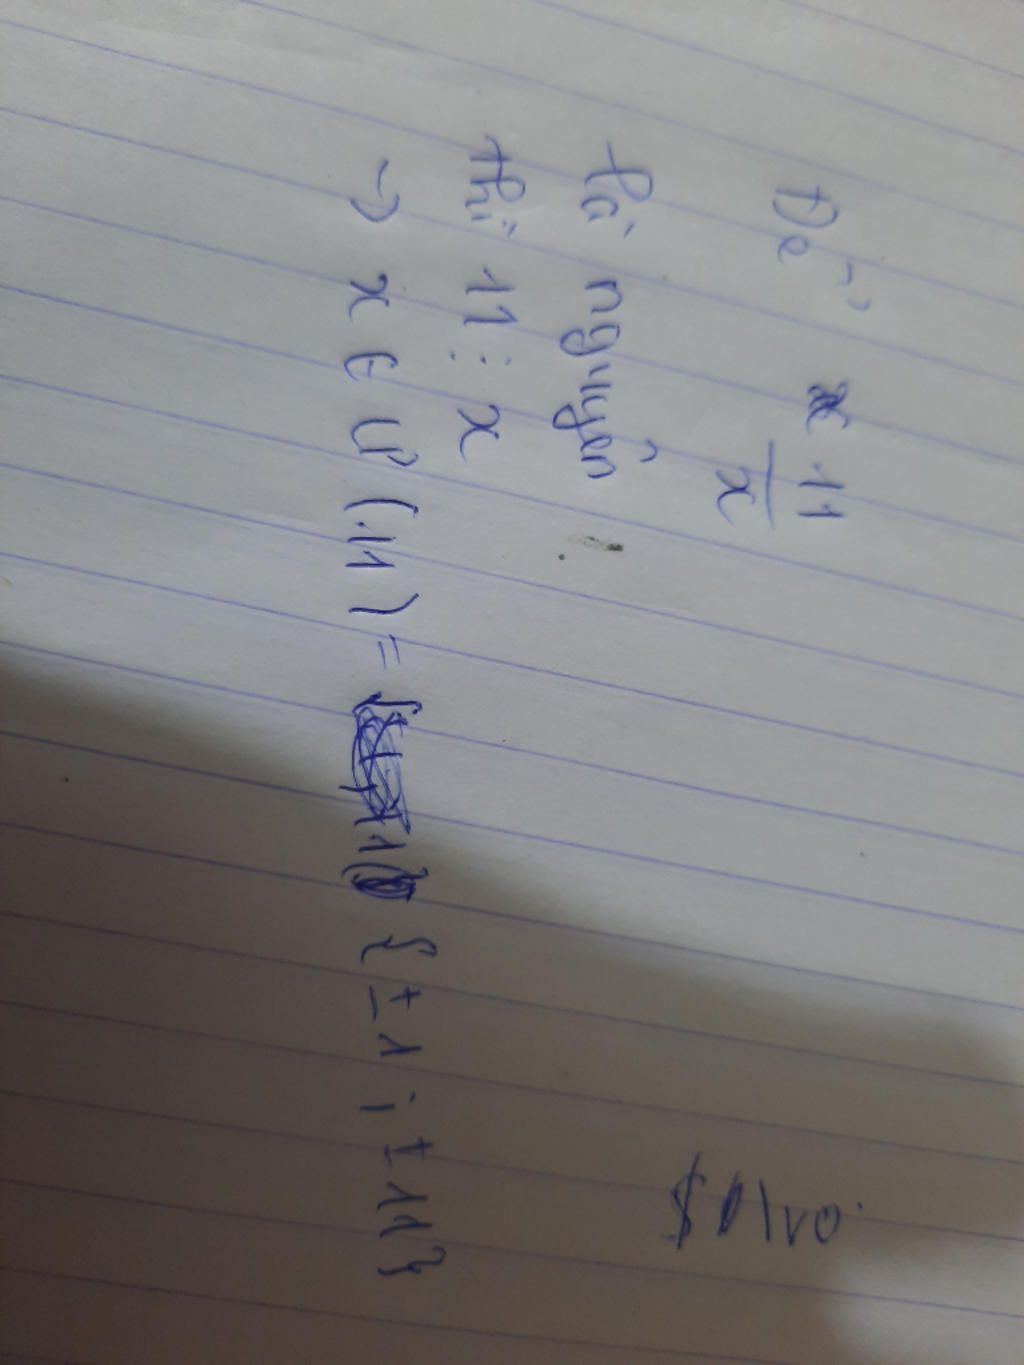 Để 11/x
là nguyên
thì 11 ⋮ x
→ x ∈ Ư (11) = {±1; ±11}